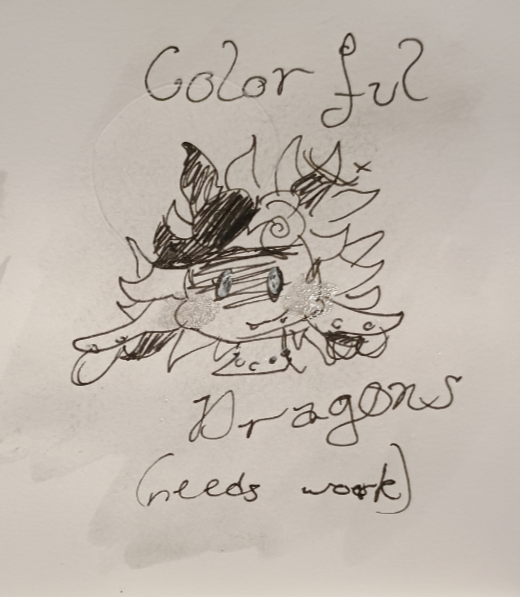 Colorful
Dragons
(needs work)